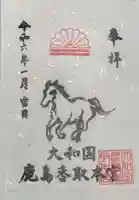 奉拝
令和六年一月吉日
大和国
鹿島香取本宮